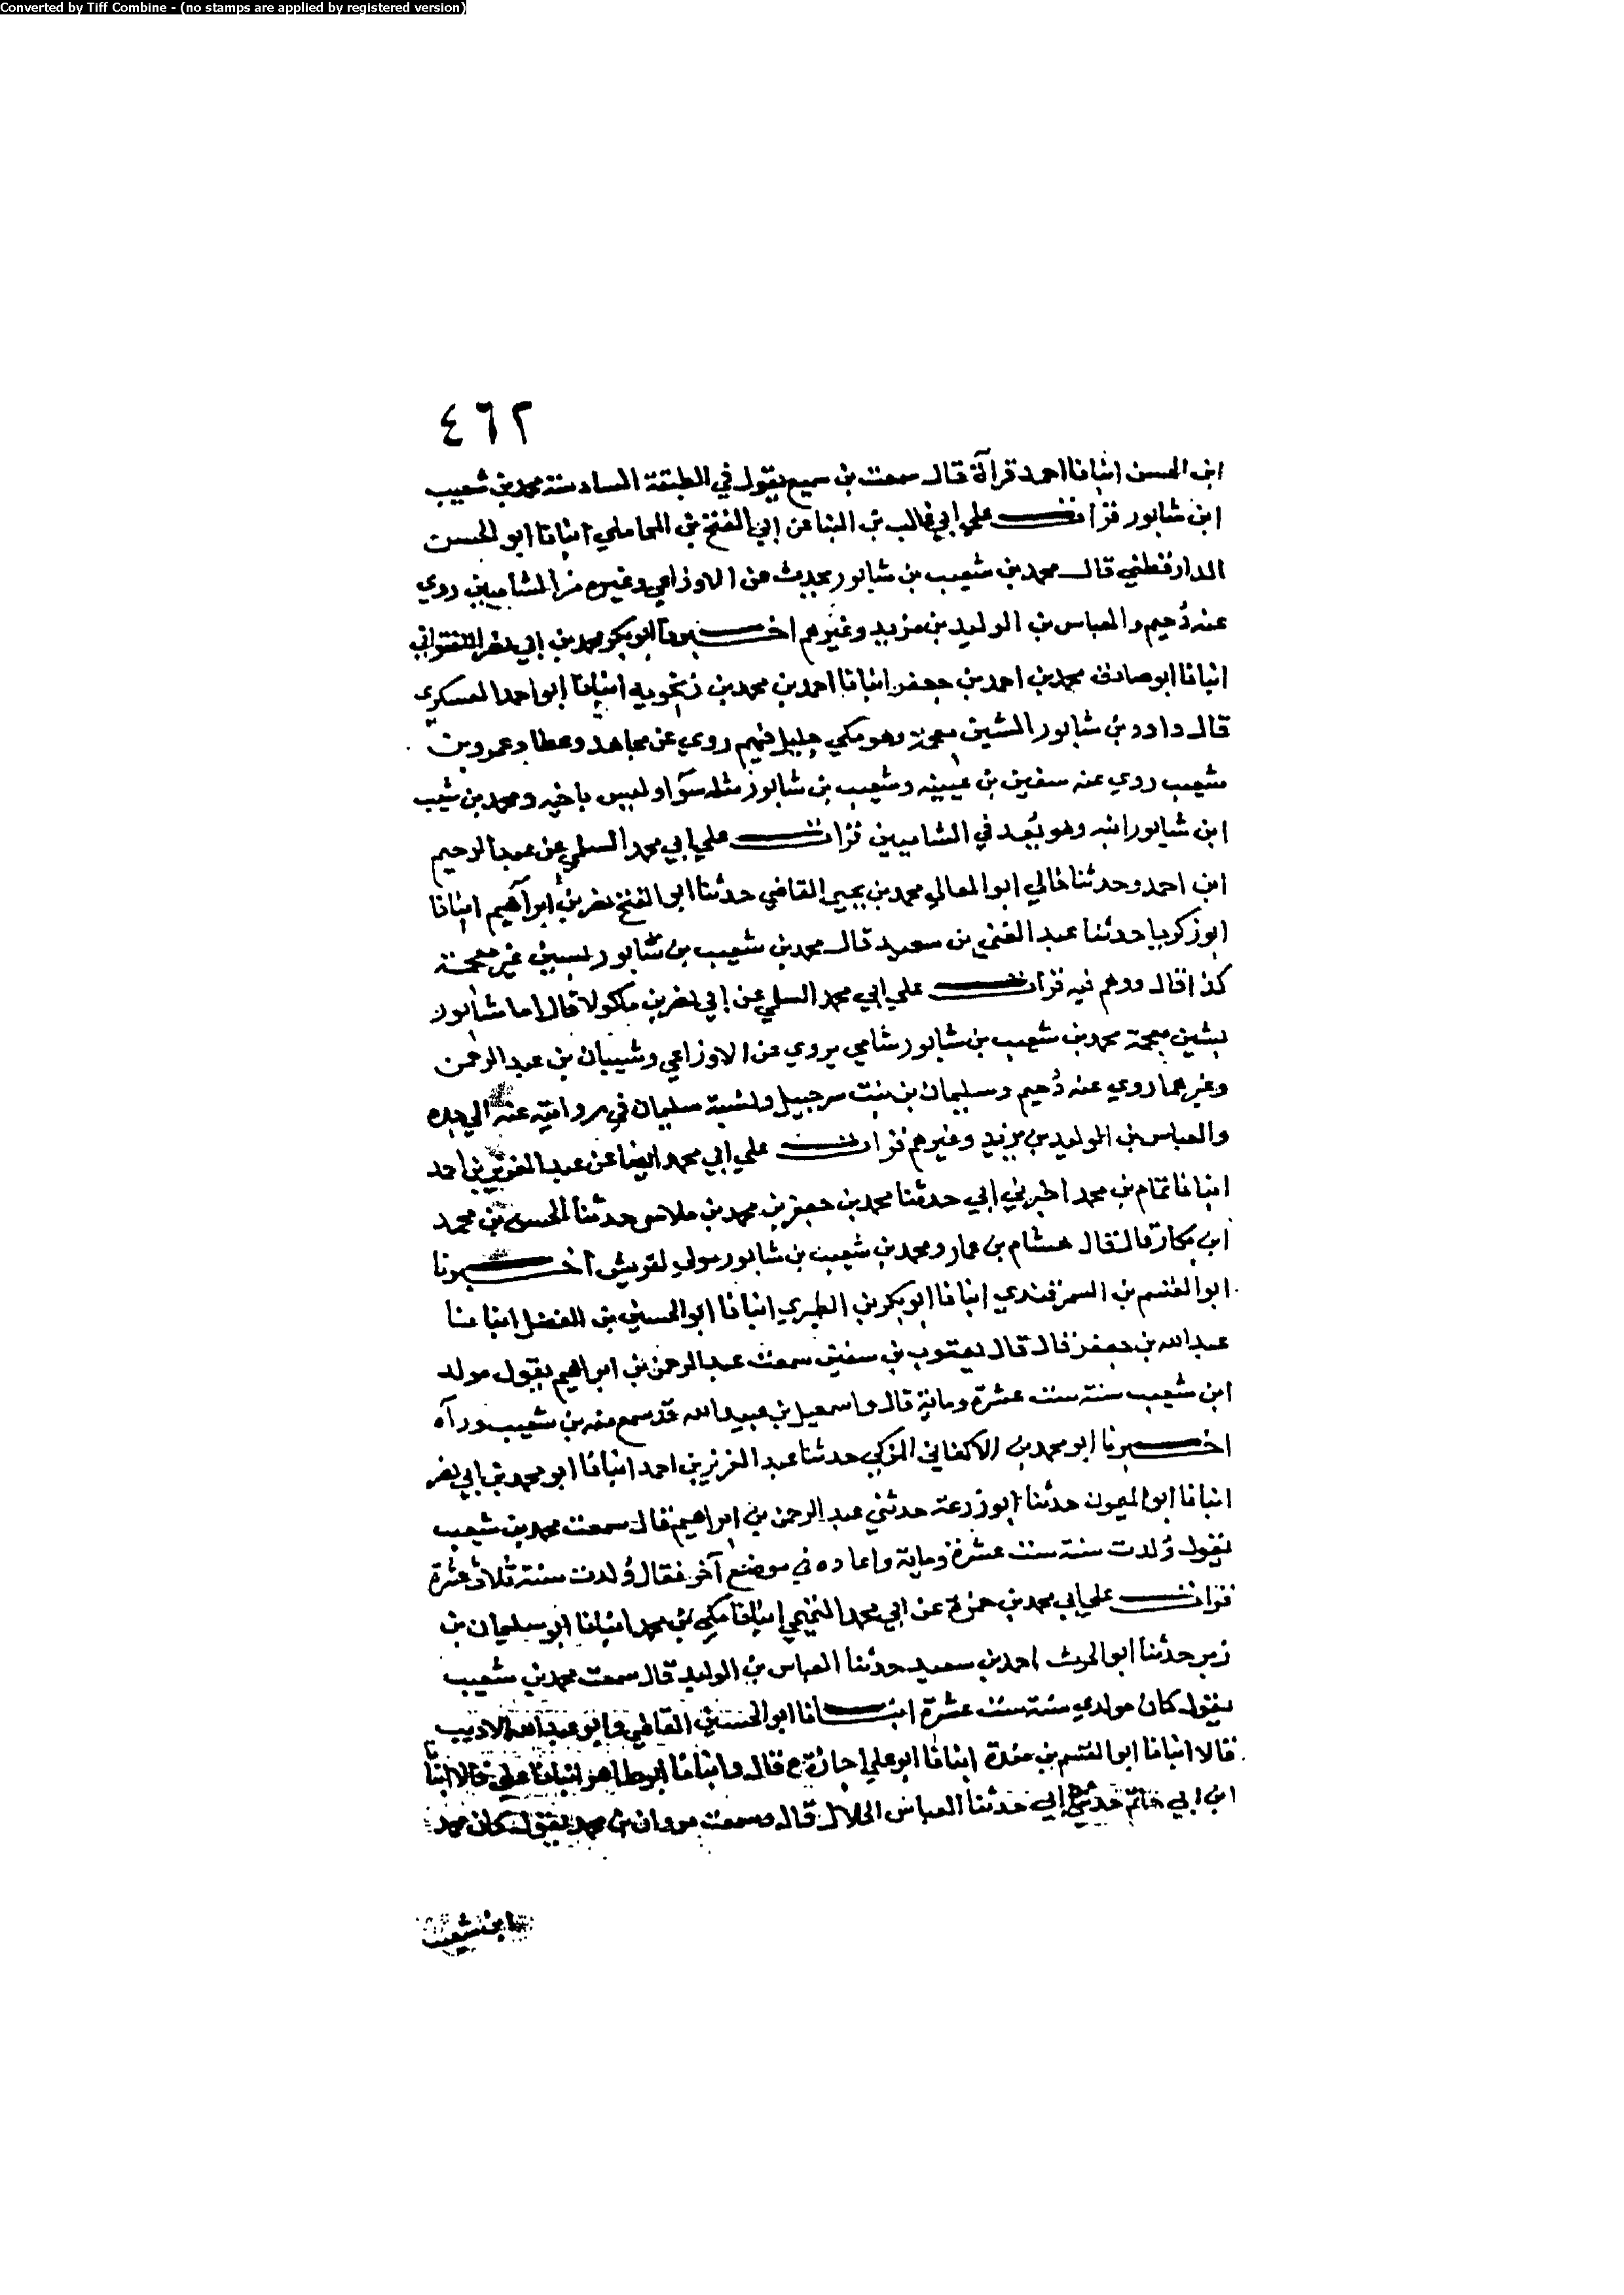 Converted by Tiff Combine - (no stamps are applied by registered version)
٤٦٢
ابن الحسن انبانا احمد قرآة قال سمعت بن سميع يقول في الطبقة السادسة محمد بن شعيب
ابن شابور قرات على ابي غالب بن البنا عن ابي الفتح بن المحاملي انبانا ابو الحسن
الدارقطني قال محمد بن شعيب بن شابور يحدث عن الاوزاعي وغيره من الشاميين روي
عنه دُحيم والعباس بن الوليد بن مزيد وغيرهم اخبرنا ابو بكر محمد بن ابي نصر اللفتواني
انبانا ابو صادق محمد بن احمد بن جعفر انبانا احمد بن محمد بن زنجويه انبانا ابو احمد العسكري
قال داود بن شابور الشين معجمة وهو مكي جليل فهم روي عن مجاهد وعطا وعمرو بن
شعيب روي عنه سفين بن عيينه وشعيب بن شابور مثله سوآ وليس باخيه ومحمد بن شعيب
ابن شابور ابنه وهو يُعد في الشاميين قرات على ابي محمد السلمي عن عبد الرحيم
ابن احمد وحدثنا خالي ابو المعالي محمد بن يحيى القاضي حدثنا ابو الفتح نصر بن ابرآهيم انبانا
ابو زكريا حدثنا عبد الغني بن سعيد قال محمد بن شعيب بن شابور بسين غير معجمة
كذا قال ووهم فيه قرات على ابي محمد السلمي عن ابي نصر بن ماكولا قال اما شابور
بشين معجمة محمد بن شعيب بن شابور شامي يروي عن الاوزاعي وشيبان بن عبد الرحمن
وغيرهما روي عنه دُحيم وسليمان بن بنت سرجبيل ولنسبة سليمان في روايته عنه الي جده
والعباس بن الوليد بن مزيد وغيرهم قرات على ابي محمد ايضا عن عبد العزيز بن احمد
انبانا تمام بن محمد اخبرني ابي حدثنا محمد بن جعفر بن محمد بن ملاس حدثنا الحسن بن محمد
ابن بكار قال قال هشام بن عمار ومحمد بن شعيب بن شابور مولي لقريش اخبرنا
ابو القسم بن السمرقندي انبانا ابو بكر بن الطبري انبانا ابو الحسين بن الفضل انبانا
عبد الله بن جعفر قال قال يعقوب بن سفين سمعت عبد الرحمن بن ابراهيم يقول مولد
ابن شعيب سنة ست عشرة وماية قال واسمعيل بن عبيد الله قد سمع منه بن شعيب ورآه
اخبرنا ابو محمد بن الاكفاني المزكي حدثنا عبد العزيز بن احمد انبانا ابو محمد بن ابي نصر
انبانا ابو الميمون حدثنا ابو زرعة حدثني عبد الرحمن بن ابراهيم قال سمعت محمد بن شعيب
يقول وُلدت سنة ست عشرة وماية واعاده في موضع آخر فقال وُلدت سنة ثلاث عشرة
قرات على ابي محمد بن حمزة عن ابي محمد التميمي انبانا مكي بن محمد انبانا ابو سليمان بن
زبر حدثنا ابو الحرث احمد بن سعيد حدثنا العباس بن الوليد قال سمعت محمد بن شعيب
يقول كان مولدي سنة ست عشرة انبانا ابو الحسين القاضي وابو عبد الله الاديب
قالا انبانا ابو القسم بن مندة انبانا ابو علي اجازة ح قال وانبانا ابو طاهر انبانا علي قالا انبا
ابن ابي حاتم حدثني ابي حدثنا العباس الخلال قال سمعت مروان بن محمد يقول كان محمد
ابن شعيب